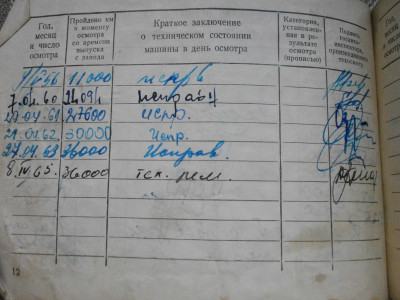 Год, месяц и число осмотра
Пройдено км к моменту осмотра со времени выпуска с завода
Краткое заключение о техническом состоянии машины в день осмотра
Категория, установленная в результате осмотра (прописью)
Подпись
11000
7.04.60 14091 исправн
27600 испр.
21.04.62 30000 испр.
27.04.63 36000 Исправ.
8.IV.65. 36000 тек. рем.
12